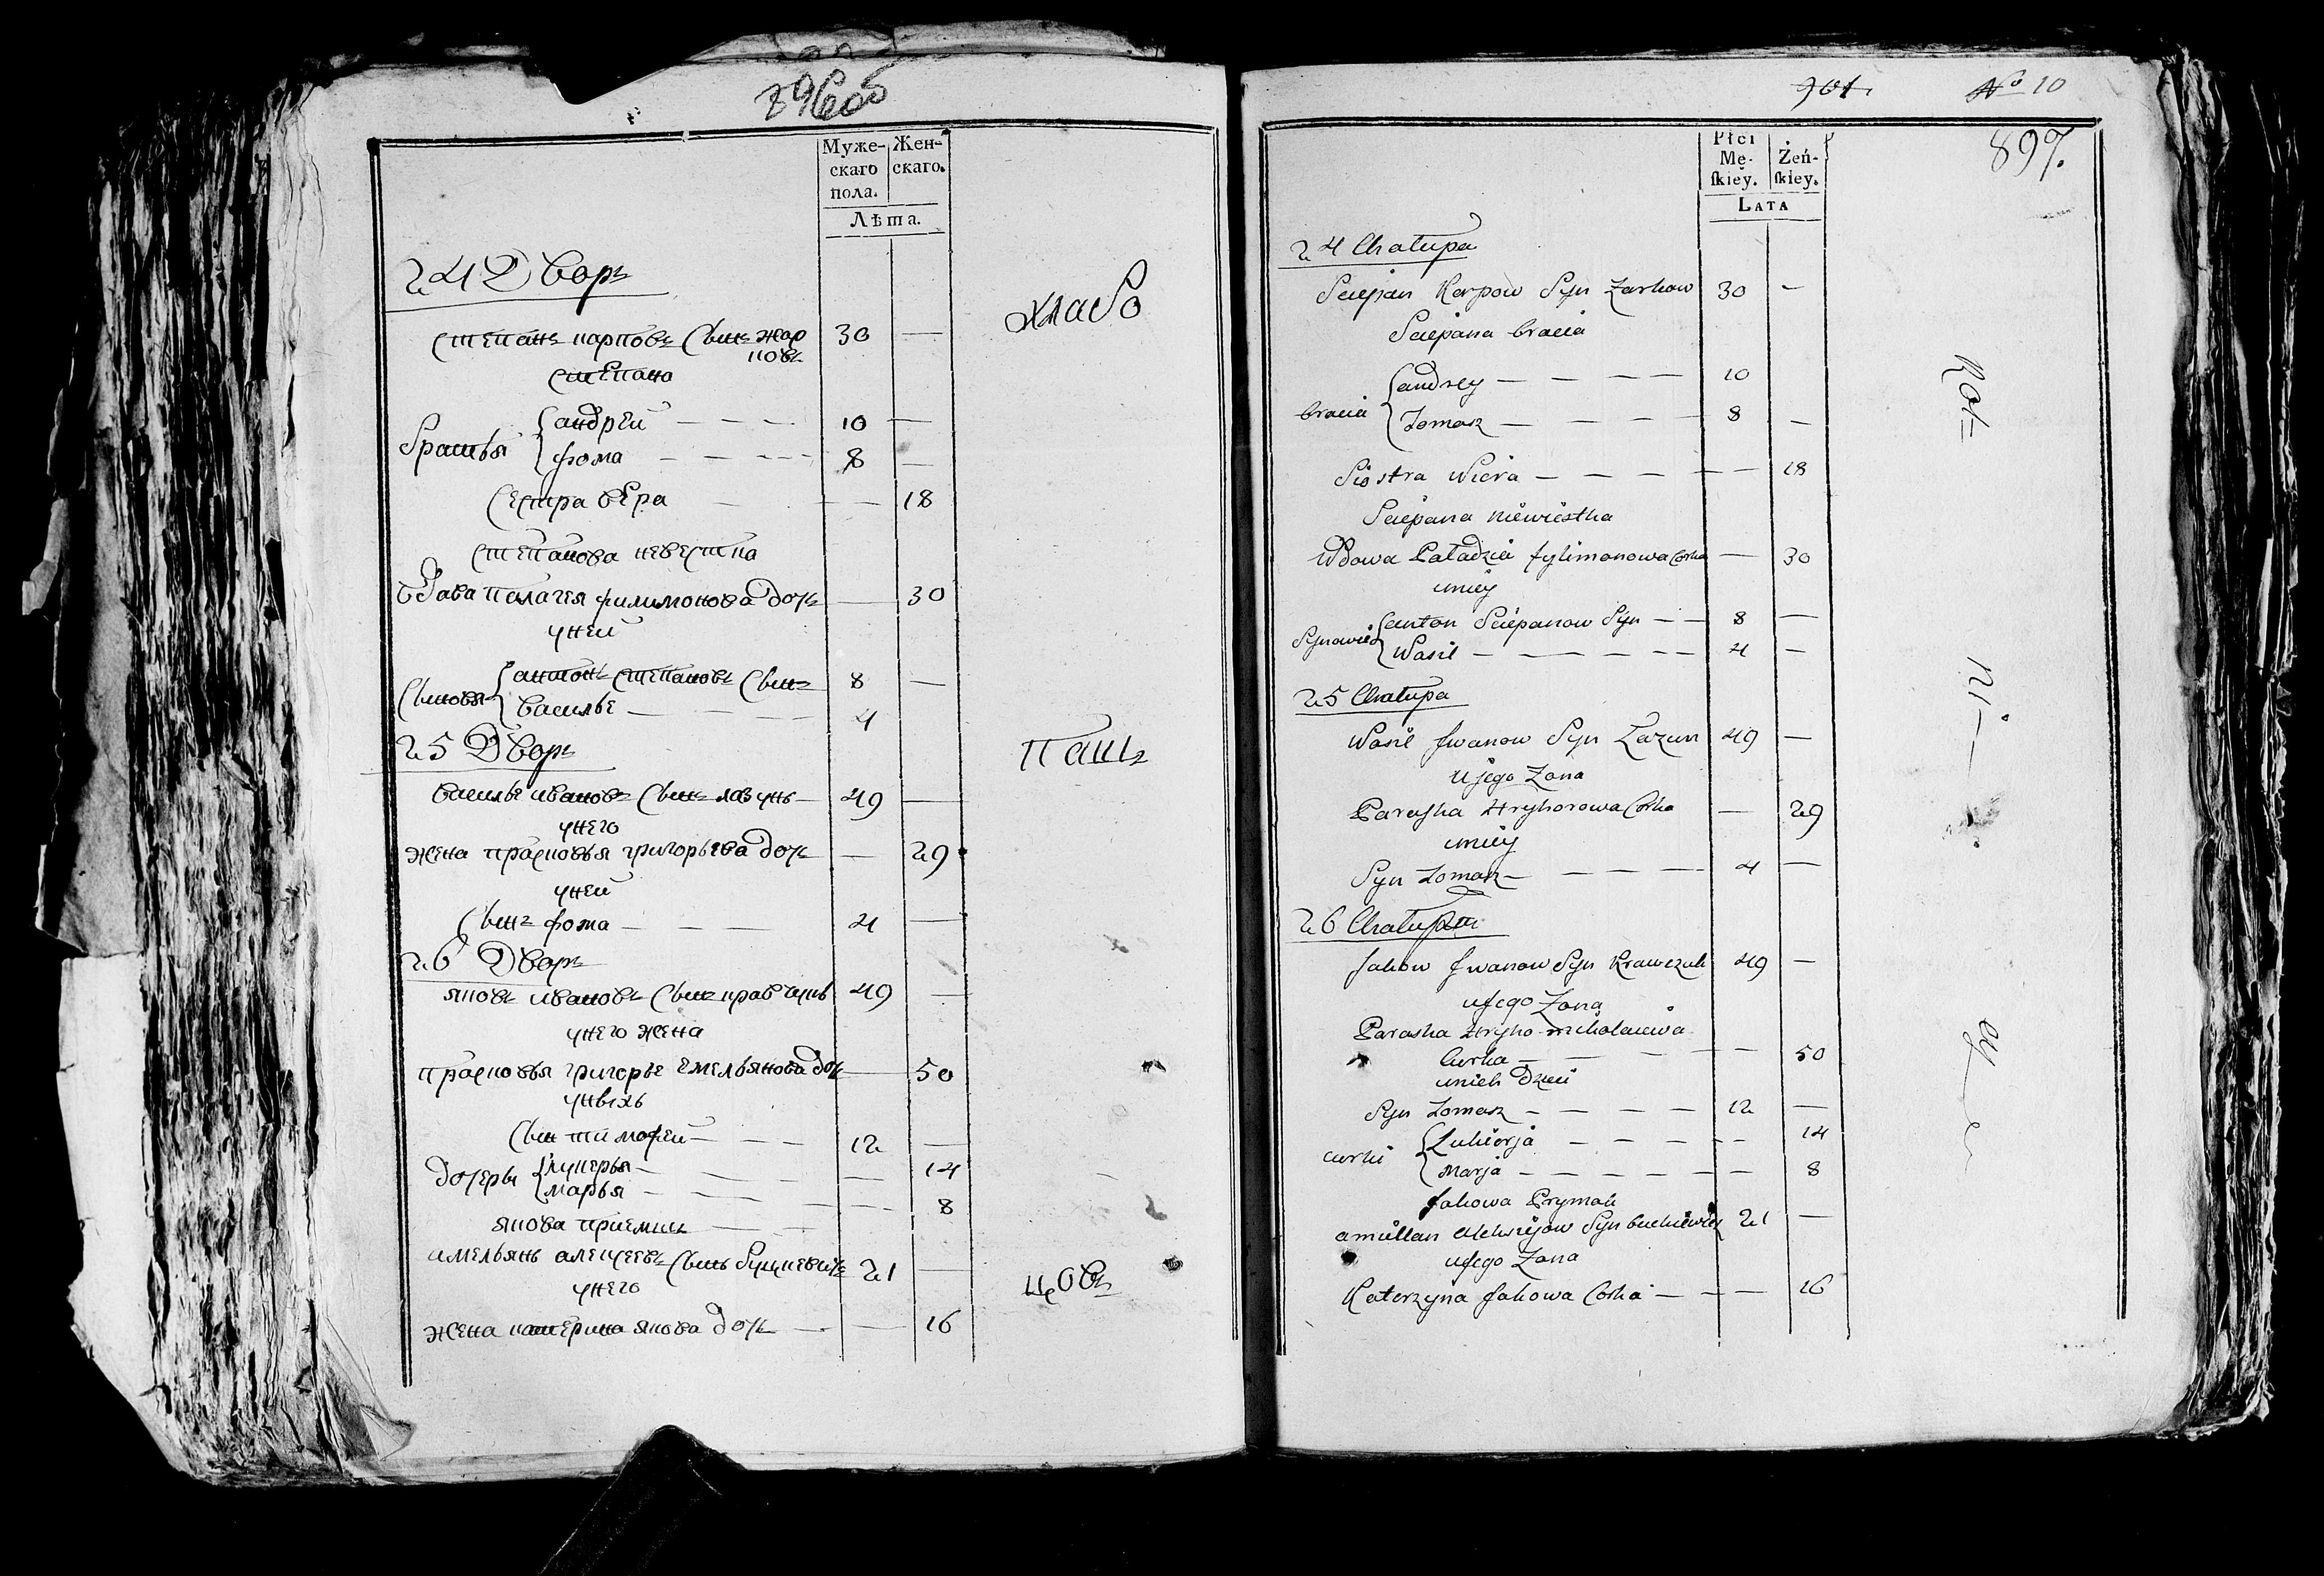 896 об
Муже-
скаго
пола.
Жен-
скаго.
Лѣта.
24 Дворъ
хлебо
степанъ карповъ сынъ жар 30 —
ковъ
степана
братья
андрей — — — 10 —
фома — — — 8 —
сестра вера — — 18
степанова невестка
вдава палагея филимонова дочь — 30
уней
сыновья
антонъ степановъ сынъ 8 —
василье — — — 4
25 Дворъ
пашъ
василье ивановъ сынъ лазунь — 49 —
унего
жена прасковья григорьева дочь — 29
уней
сынъ фома — — — 4 —
26 Дворъ
яковъ ивановъ сынъ кравчукъ 49 —
унего жена
прасковья григорье емельянова дочь — 50
унихъ
сын тимофей — — — 12 —
дочерьи
лукерья — — — 14
марья — — — 8
якова приемыш — —
имельянь алецеевъ сынь буцкевичъ 21 —
унего
цовъ
жена катерина якова дочь — — 16
901 No 10
897.
Płci
Mę-
ſkiey.
Żeń-
ſkiey.
LATA
24 Chatupa
Sciepan Karpow Syn Zarkow 30 —
Sciepana bracia
bracia
andrey — — — — 10
Tomasz — — — — 8 —
Siostra Wiera — — — — — 18
Sciepana niewiestka
Wdowa Patadzia fylimonowa Corka — 30
uniey
Synowie
anton Sciepanow Syn — — 8 —
Wasil — — — — — 4 —
25 Chatupa
Wasil Iwanow Syn Lazun 49 —
Ujego Zona
Paraska Hryhorowa Corka — 29
uniey
Syn Tomasz — — — — 4 —
26 Chatupa
Jakow Iwanow Syn Krawczuk 49 —
ujego Zona
Paraska Hryho mikolaiewa
Curka — — — — 50
unich Dzieci
Syn Tomasz — — — — 12 —
curki
Lukierja — — — — — 14
Marja — — — — — — 8
Jakowa Prymak
amillan Alekseijow Syn buckiewicz 21 —
ujego Zona
Katerzyna Jakowa Corka — — — 16
Rol=
ni—
cy